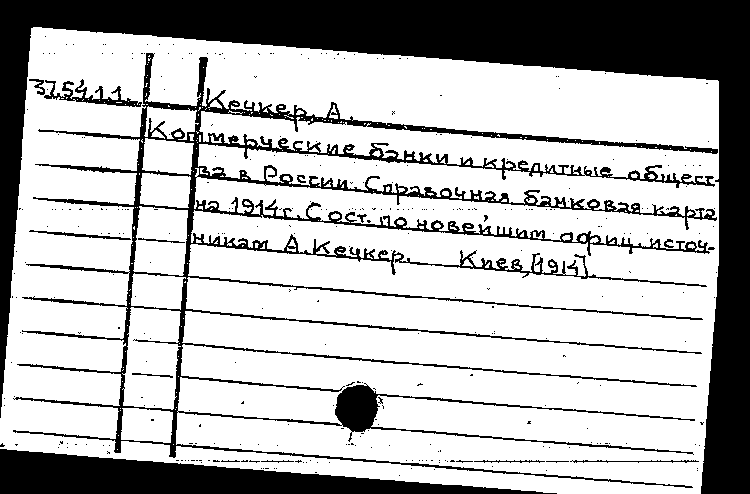 37.54.1.1. Кечкер, А.
Коммерческие банки и кредитные общест-
ва в России. Справочная банковая карта
на 1914 г. Сост. по новейшим офиц. источ-
никам А. Кечкер. Киев, [1914].